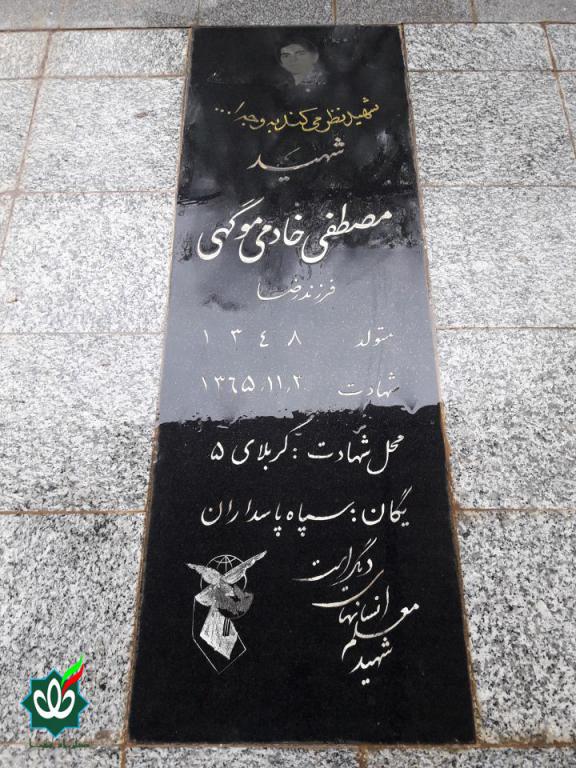 شهید نظر می کند به وجه ا...
شهید
مصطفی خادمی موگهی
فرزند رضا
متولد ۱۳٤۸
شهادت ۱۳٦۵/۱۱/۲
محل شهادت : کربلای ۵
یگان : سپاه پاسداران
شهید
معلم
انسانهای
دیگر است